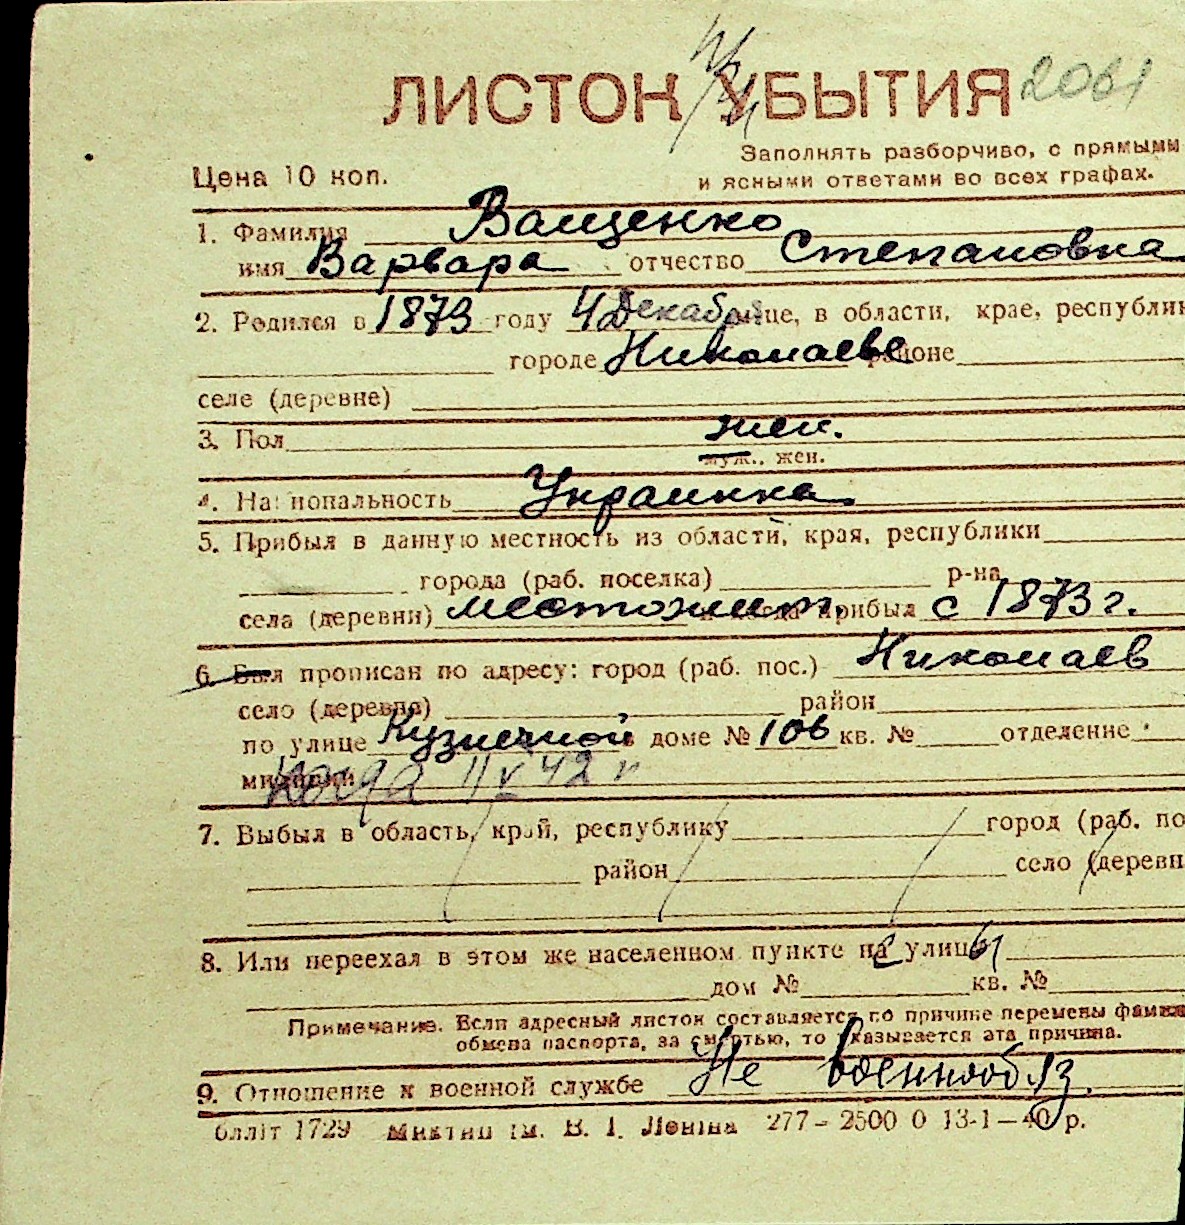 ЛИСТОК УБЫТИЯ 2061
Заполнять разборчиво, с прямыми
Цена 10 коп.
и ясными ответами во всех графах.
1. Фамилия Ващенко
имя Варвара отчество Степановна
2. Родился в 1873 году 4 Декабря це, в области, крае, республик
городе Николаеве районе
селе (деревне)
3. Пол жен.
муж., жен.
4. Национальность Украинка
5. Прибыл в данную местность из области, края, республики
города (раб. поселка) р-на
села (деревни) местожит. прибыл с 1873 г.
6. Был прописан по адресу: город (раб. пос.) Николаев
село (деревня) район
по улице Кузнечной в доме № 106 кв. № отделение
милиции когда 42 г
7. Выбыл в область, край, республику город (раб. по
район село (деревн
8. Или переехал в этом же населенном пункте на улицу
дом № кв. №
Примечание. Если адресный листок составляется по причине перемены фамил
обмена паспорта, за смертью, то указывается эта причина.
9. Отношение к военной службе Не военнообяз.
блліт 1729 ім. В. І. Леніна 277 – 2500 0 13-1–40 р.